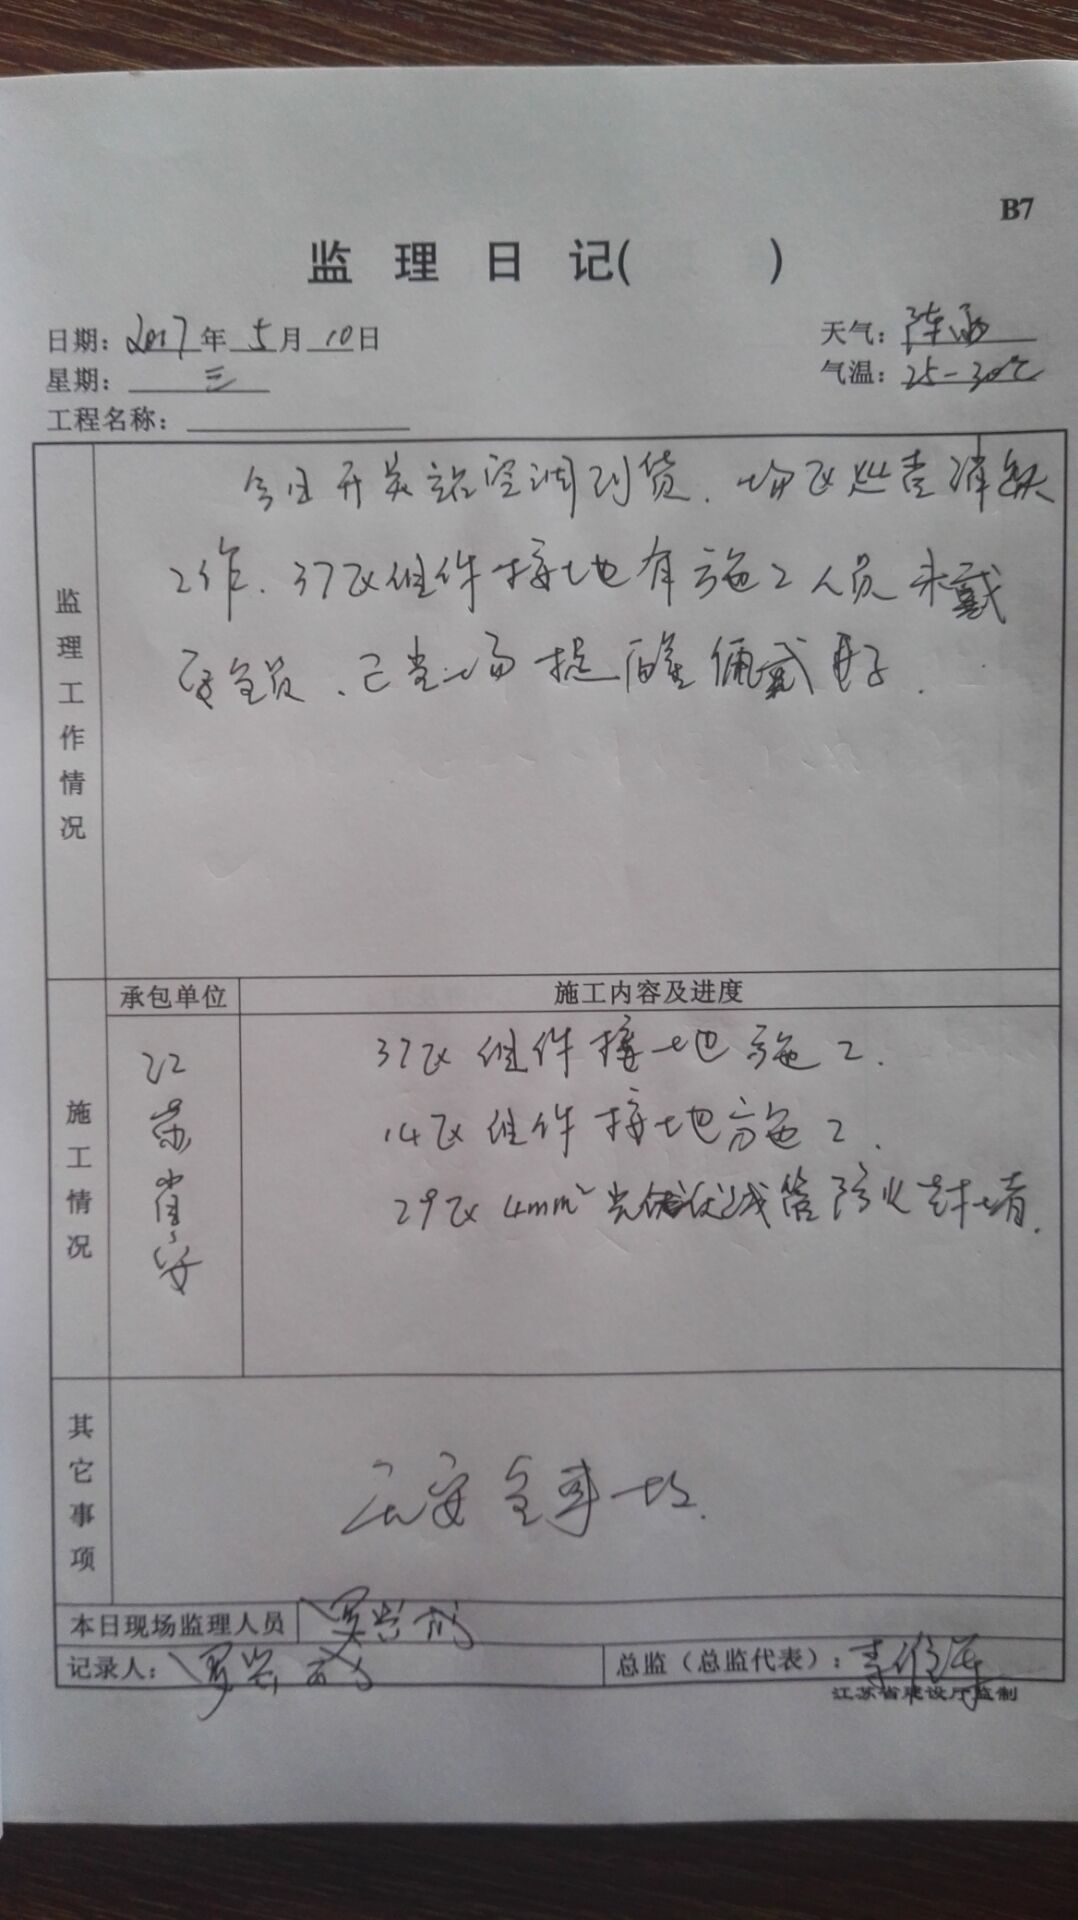 B7
监理日记(　　)
日期：2017年5月10日
天气：阵雨
星期：三
气温：25-30℃
工程名称：
监理工作情况
今日开关站空调到货．场区巡查消缺
工作．37区组件接地有施工人员未戴
安全员、已当场提醒佩戴好．
施工情况
承包单位
施工内容及进度
江苏肖安
37区组件接地施工．
14区组件接地施工．
29区4mm²光伏线管防火封堵．
其它事项
无安全事故．
本日现场监理人员
记录人：
总监（总监代表）：
江苏省建设厅监制